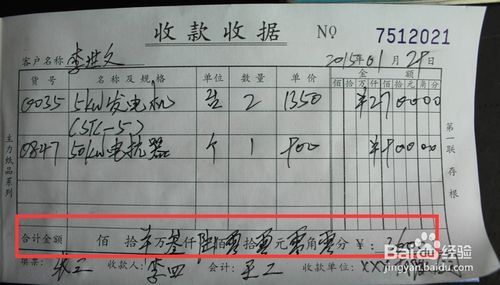 收款收据 NO 7512021
客户名称 李世文 2015年01月29日
货号 名称及规格 单位 数量 单价 金额
佰拾万仟佰拾元角分
0035 5kw发电机 台 2 1350 ¥270000
(STC-5)
0847 50kw电抗器 个 1 900 ¥90000
合计金额 佰 拾 万 仟 陆佰 零拾 零元 零角 零分 ¥:
填票: 张三 收款人: 李四 会计: 王二 收款单位: XXX
主力纸品系列
第一联存根
Baidu 经验
jingyan.baidu.com